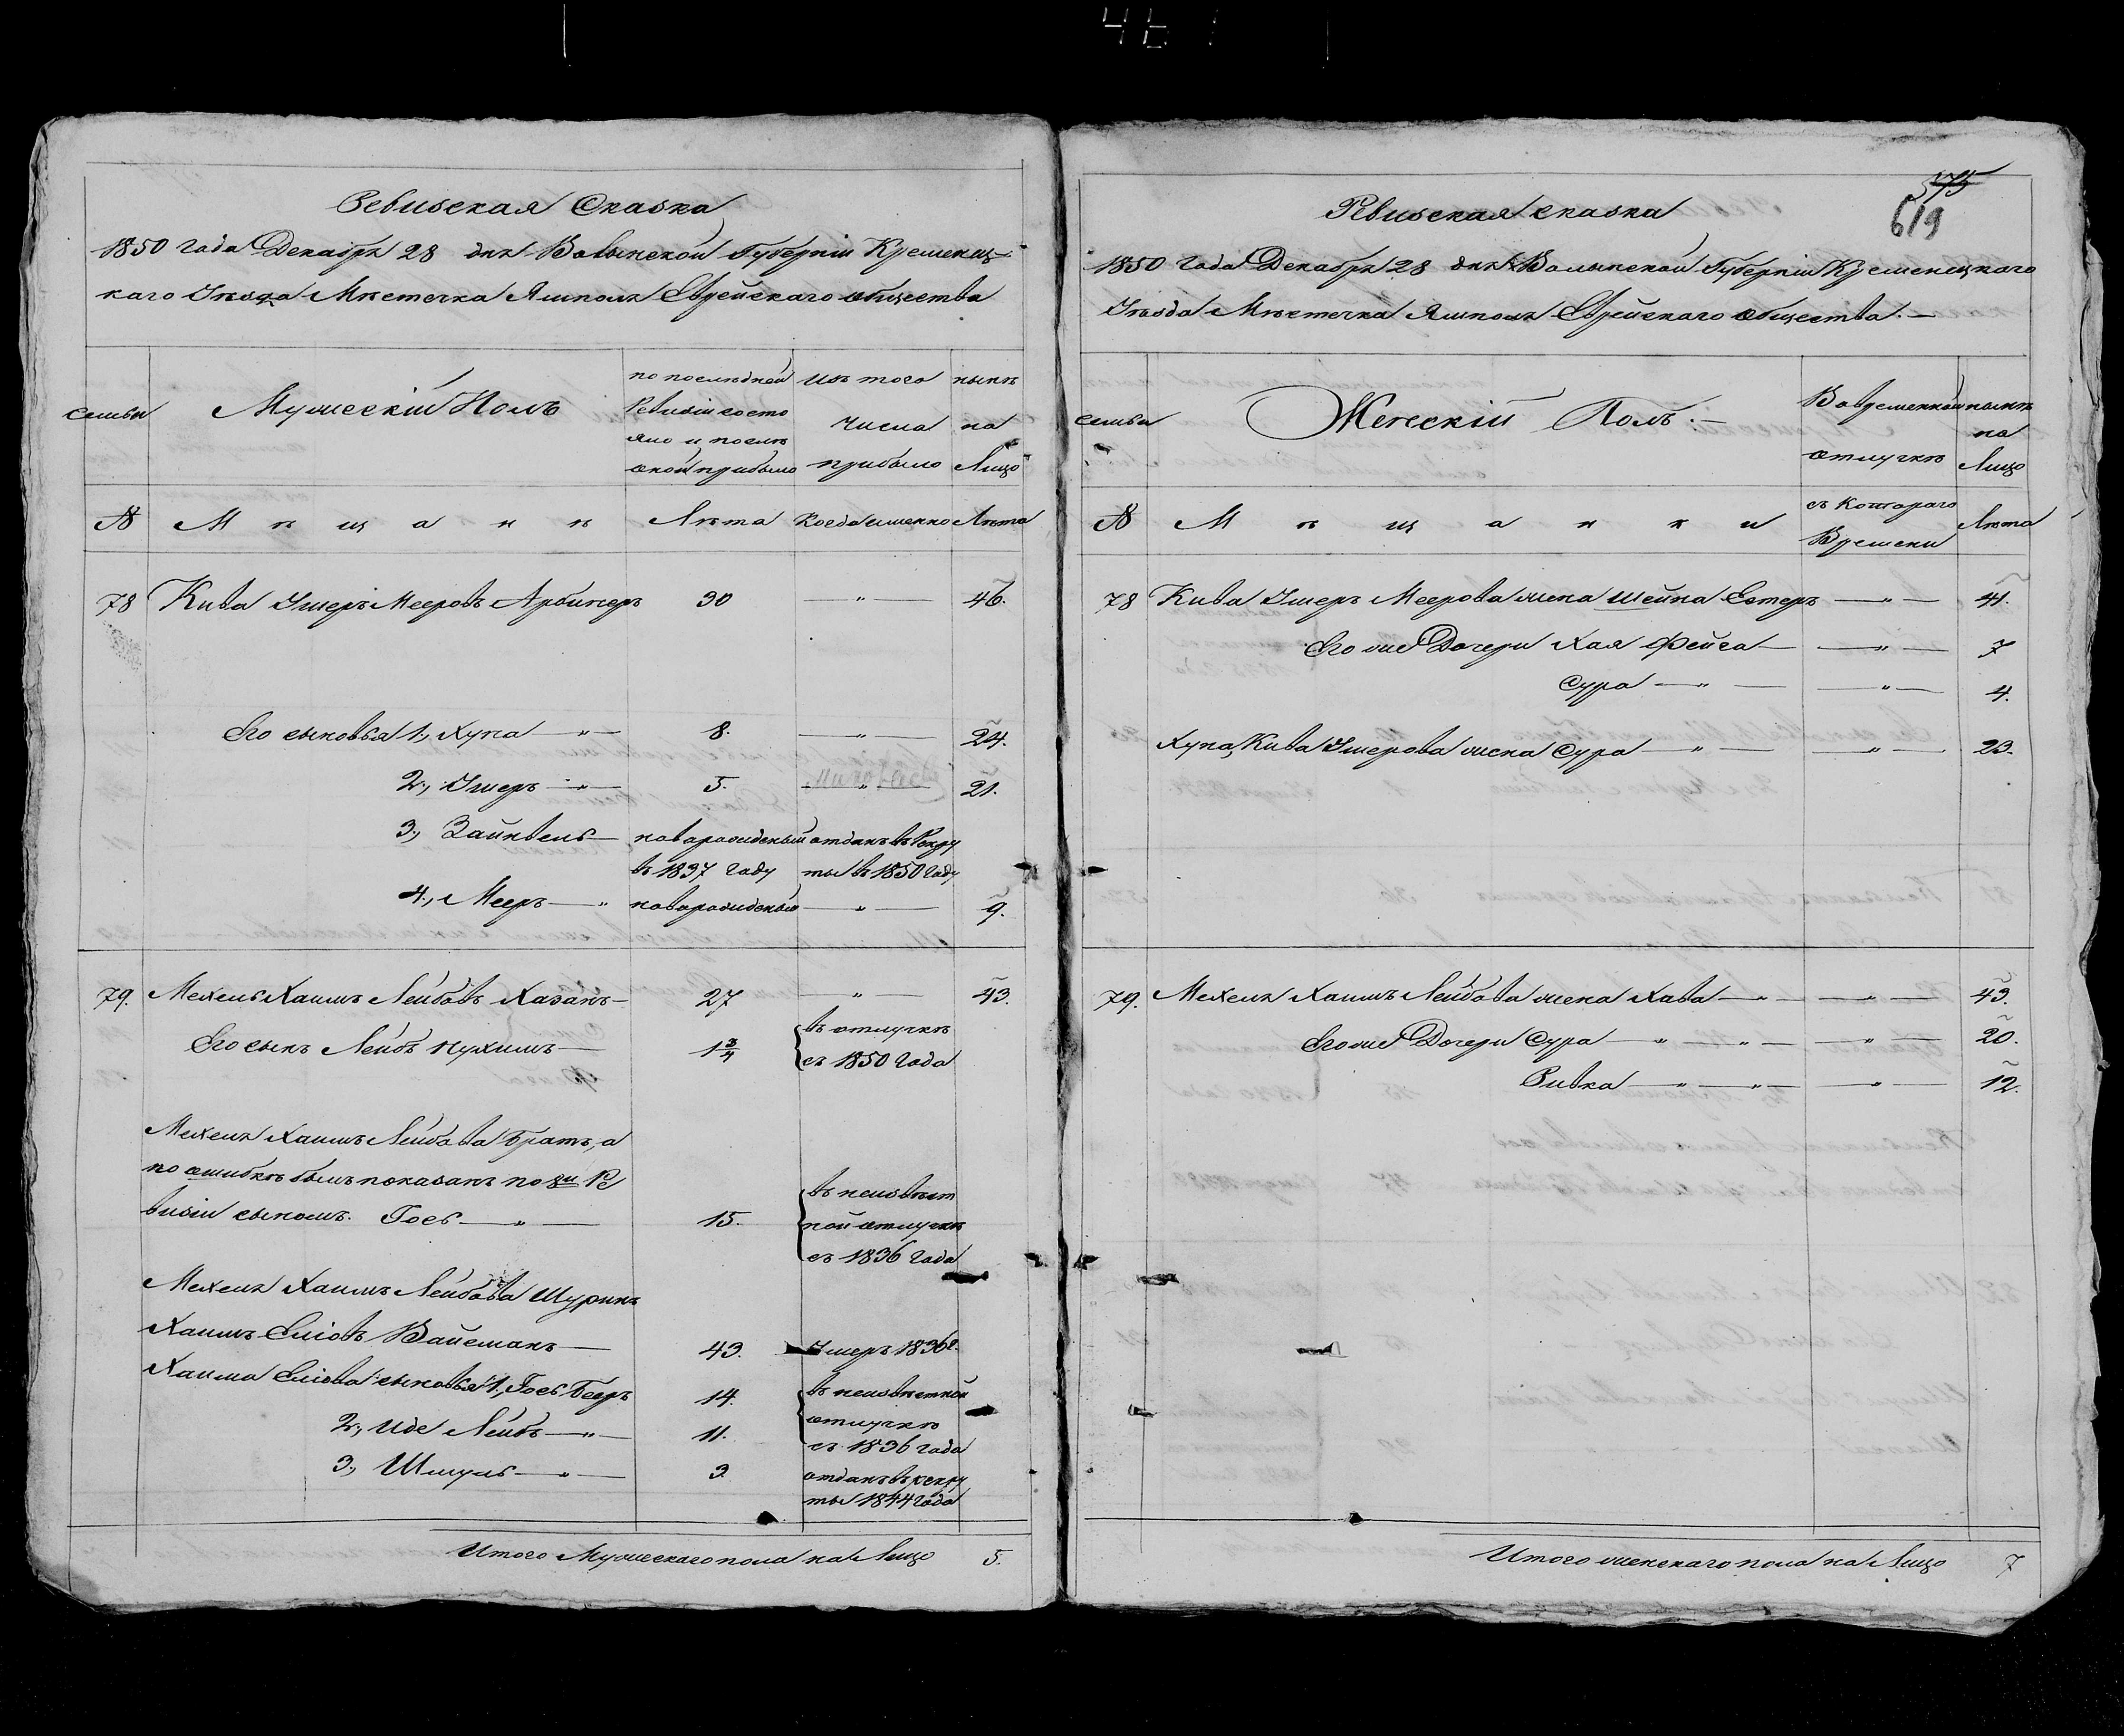 Ревизская Сказка
1850 года Декабря 28 дня Волынской Губерніи Кременец-
каго Уезда Мѣстечка Ямполя Еврейскаго общества
семьи
Мужескій Полъ
по последней Ревизіи состо яло и после оной прибыло
изъ того числа прибыло
нынѣ на Лицо
№ Мѣщане Лѣта Когда именно Лѣта
78 Кива Умеръ Мееровъ Арбингеръ 30 — " — 46.
Его сыновья 1, Хуна — " — 8. — " — 24.
2, Умеръ — " — 5. — " — 21.
3, Зайнвель — новорожденый отданъ въ Рекру
въ 1837 году ты въ 1850 году
4, Мееръ — " новорожденый — " — 9.
79. Мехель Хаимъ Лейбовъ Хазанъ — 27 — " — 43.
Его сынъ Лейбъ Нухимъ — 1¾ въ отлучкѣ
съ 1850 года
Мехеля Хаимъ Лейбова Братъ, а
по ошибкѣ былъ показанъ по 8й Ре
визіи сыномъ. Гось — " — 15. въ неизвѣст
ной отлучкѣ
съ 1836 года
Мехеля Хаимъ Лейбова Шуринъ
Хаимъ Еліовъ Вайсманъ — 43. Умеръ 1836 г.
Хаима Еліова сыновья 1, Гось Беръ 14. въ неизвѣстной
отлучкѣ
2, Иде Лейбъ — " — 11. съ 1836 года
3, Шмуль — " — 3. отданъ въ рекру
ты 1844 года
Итого Мужескаго пола на Лицо 5.
575
619
Ревизская сказка
1850 года Декабря 28 дня Волынской Губерніи Кременецкаго
Уезда Мѣстечка Ямполя Еврейскаго общества. —
семьи
Женскій Полъ. —
Во временной отлучкѣ
нынѣ на Лицо
№ Мѣщанки съ Котораго Времени Лѣта
78 Кива Умеръ Меерова жена Шейна Естеръ — " — 41.
Его же Дочери Хая Фейга — — " — 7
Сура — " — — " — 4.
Хуна, Кива Умерова жена Сура — " — — " — 23.
79. Мехеля Хаимъ Лейбова жена Хава — " — — " — 43.
Его же Дочери Сура — " — " — — " — 20.
Ривка — " — " — — " — 12.
Итого женскаго пола на Лицо 7